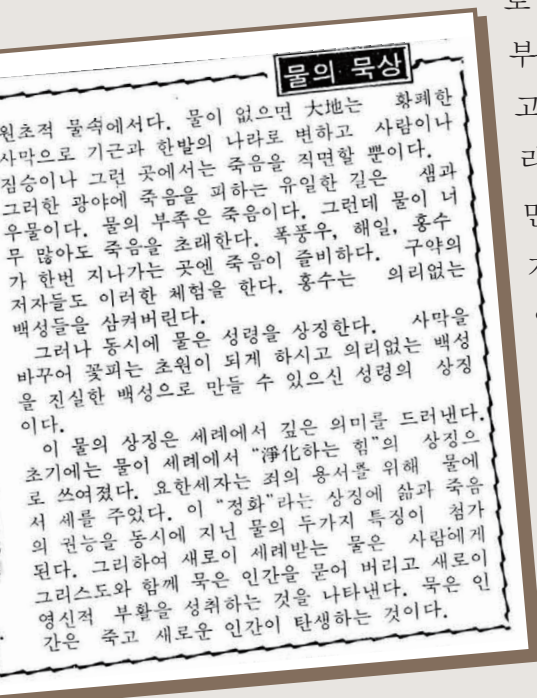 물의 묵상
원초적 물속에서다. 물이 없으면 大地는 황폐한
사막으로 기근과 한발의 나라로 변하고 사람이나
짐승이나 그런 곳에서는 죽음을 직면할 뿐이다.
그러한 광야에 죽음을 피하는 유일한 길은 샘과
우물이다. 물의 부족은 죽음이다. 그런데 물이 너
무 많아도 죽음을 초래한다. 폭풍우, 해일, 홍수
가 한번 지나가는 곳엔 죽음이 즐비하다. 구약의
저자들도 이러한 체험을 한다. 홍수는 의리없는
백성들을 삼켜버린다.
그러나 동시에 물은 성령을 상징한다. 사막을
바꾸어 꽃피는 초원이 되게 하시고 의리없는 백성
을 진실한 백성으로 만들 수 있으신 성령의 상징
이다.
이 물의 상징은 세례에서 깊은 의미를 드러낸다.
초기에는 물이 세례에서 "淨化하는 힘"의 상징으
로 쓰여졌다. 요한세자는 죄의 용서를 위해 물에
서 세를 주었다. 이 "정화"라는 상징에 삶과 죽음
의 권능을 동시에 지닌 물의 두가지 특징이 첨가
된다. 그리하여 새로이 세례받는 물은 사람에게
그리스도와 함께 묵은 인간을 묻어 버리고 새로이
영신적 부활을 성취하는 것을 나타낸다. 묵은 인
간은 죽고 새로운 인간이 탄생하는 것이다.
부
고